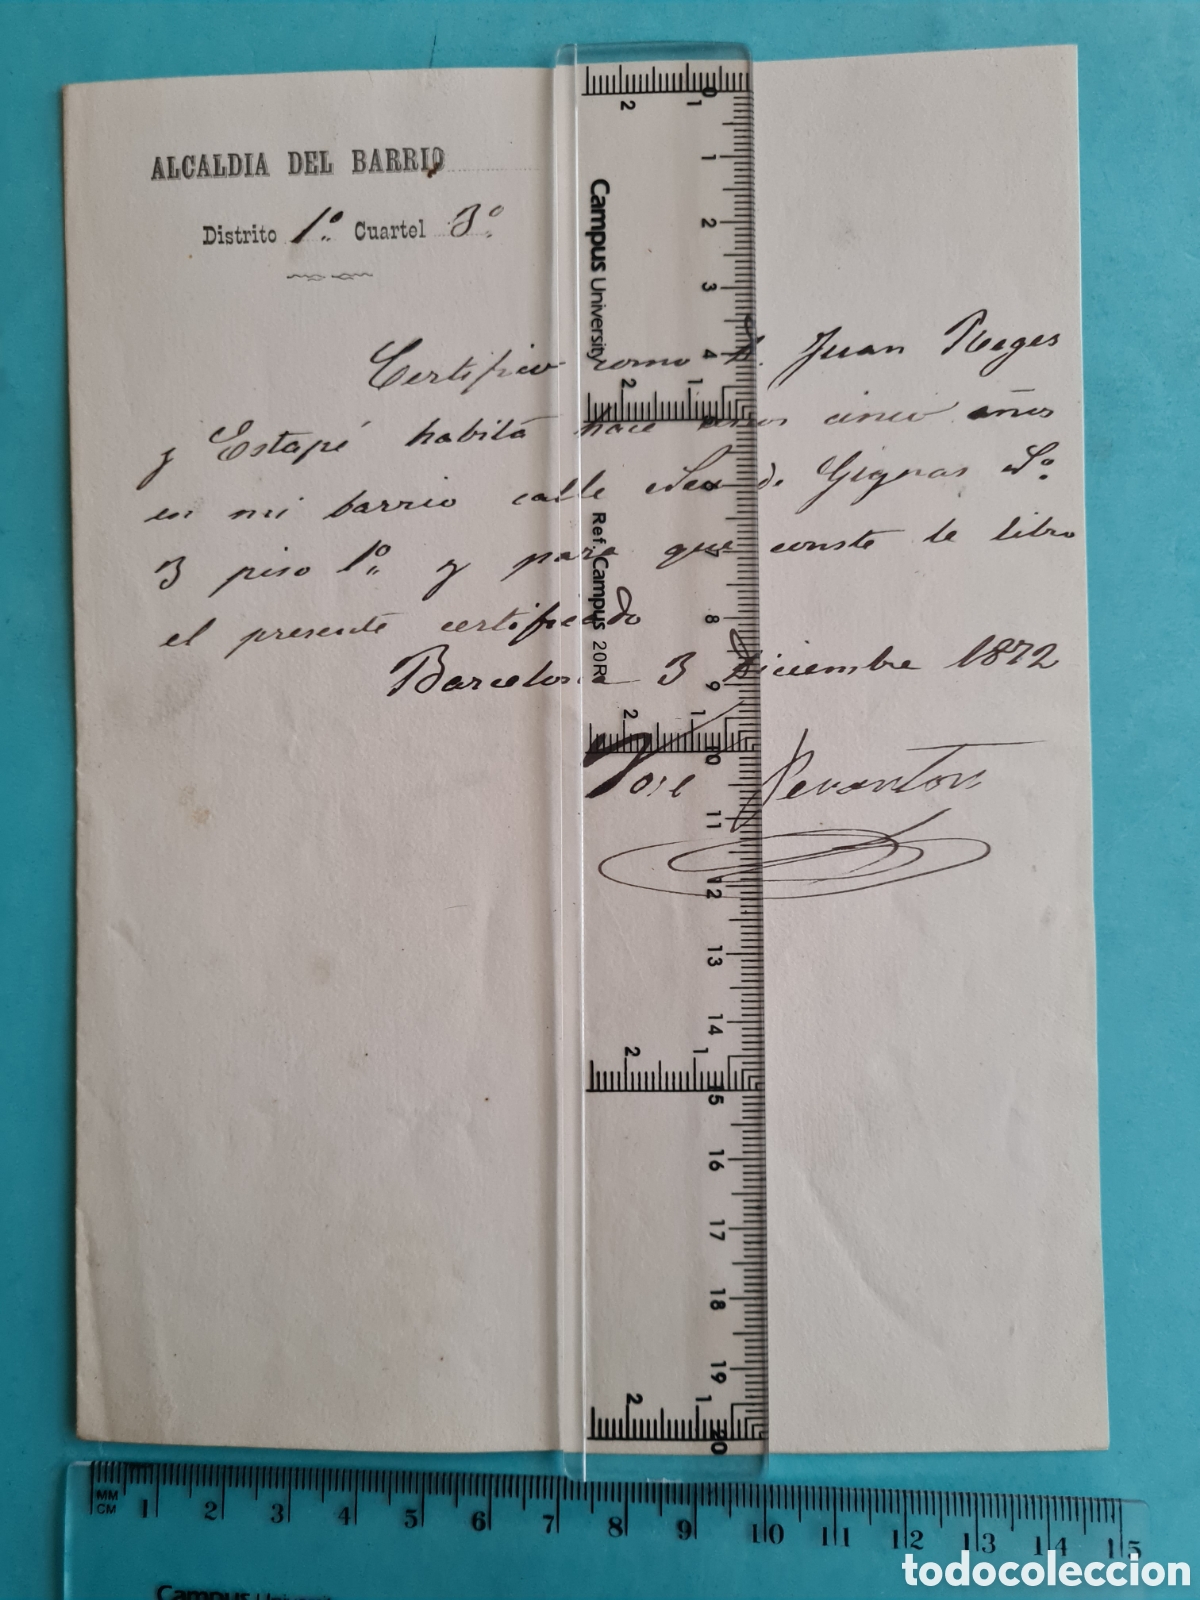 ALCALDIA DEL BARRIO
Distrito 1º Cuartel 3º
Certifico como D. Juan Reges
y Estapé habita hace unos cinco años
en mi barrio calle de Gignas Nº
3 piso 1º y para que conste le libro
el presente certificado
Barcelona 3 Diciembre 1872
Jose
Campus University
Ref. Campus 20R
0 1 2 3 4 5 6 7 8 9 10 11 12 13 14 15 16 17 18 19 20
2 1
2 1
2 1
2 1
2 1
MM
CM
1 2 3 4 5 6 7 8 9 10 11 12 13 14 15
Campus University
todocoleccion